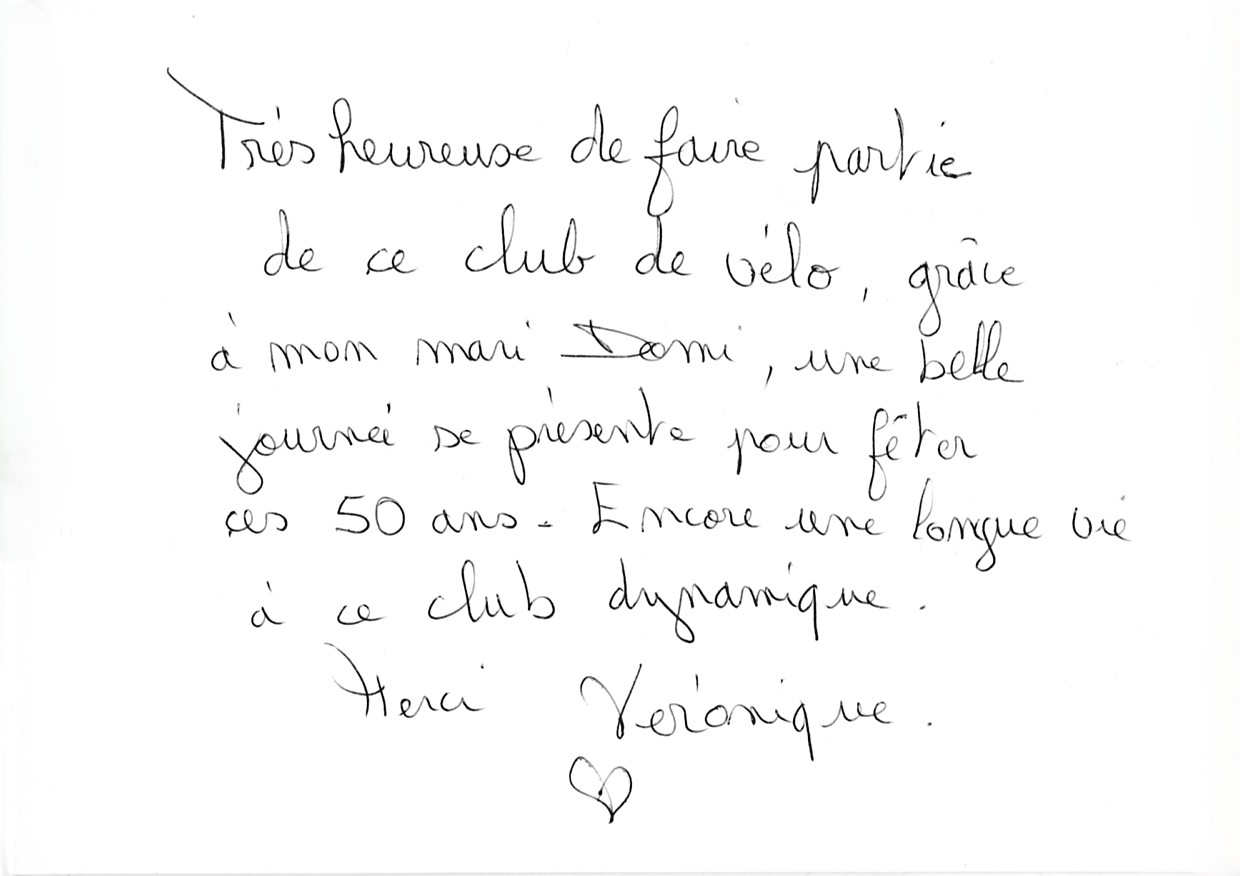 Très heureuse de faire partie
de ce club de vélo, grâce
à mon mari Domi, une belle
journée se présente pour fêter
ces 50 ans - Encore une longue vie
à ce club dynamique.
Merci Véronique.